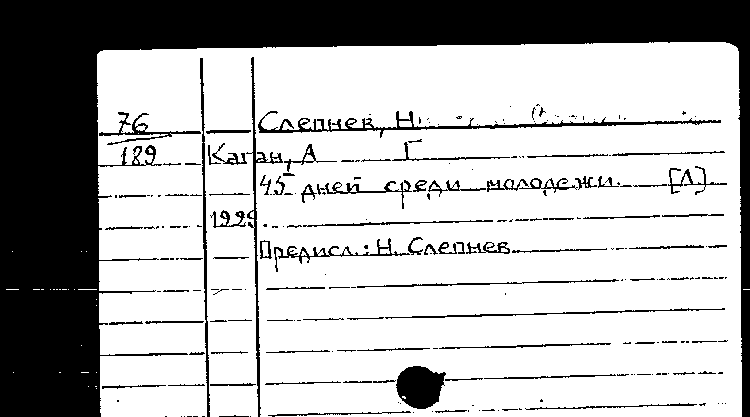 76 Слепнев, Н.
189 Каган, А Г
45 дней среди молодежи. [Л].
1929.
Предисл.: Н. Слепнев.